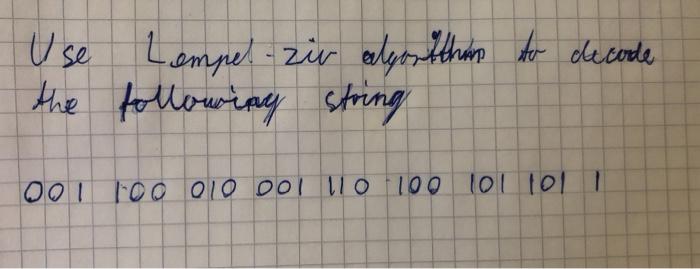 Use Lempel-ziv algorithm to decode
the following string
001 100 010 001 110 100 101 101 1